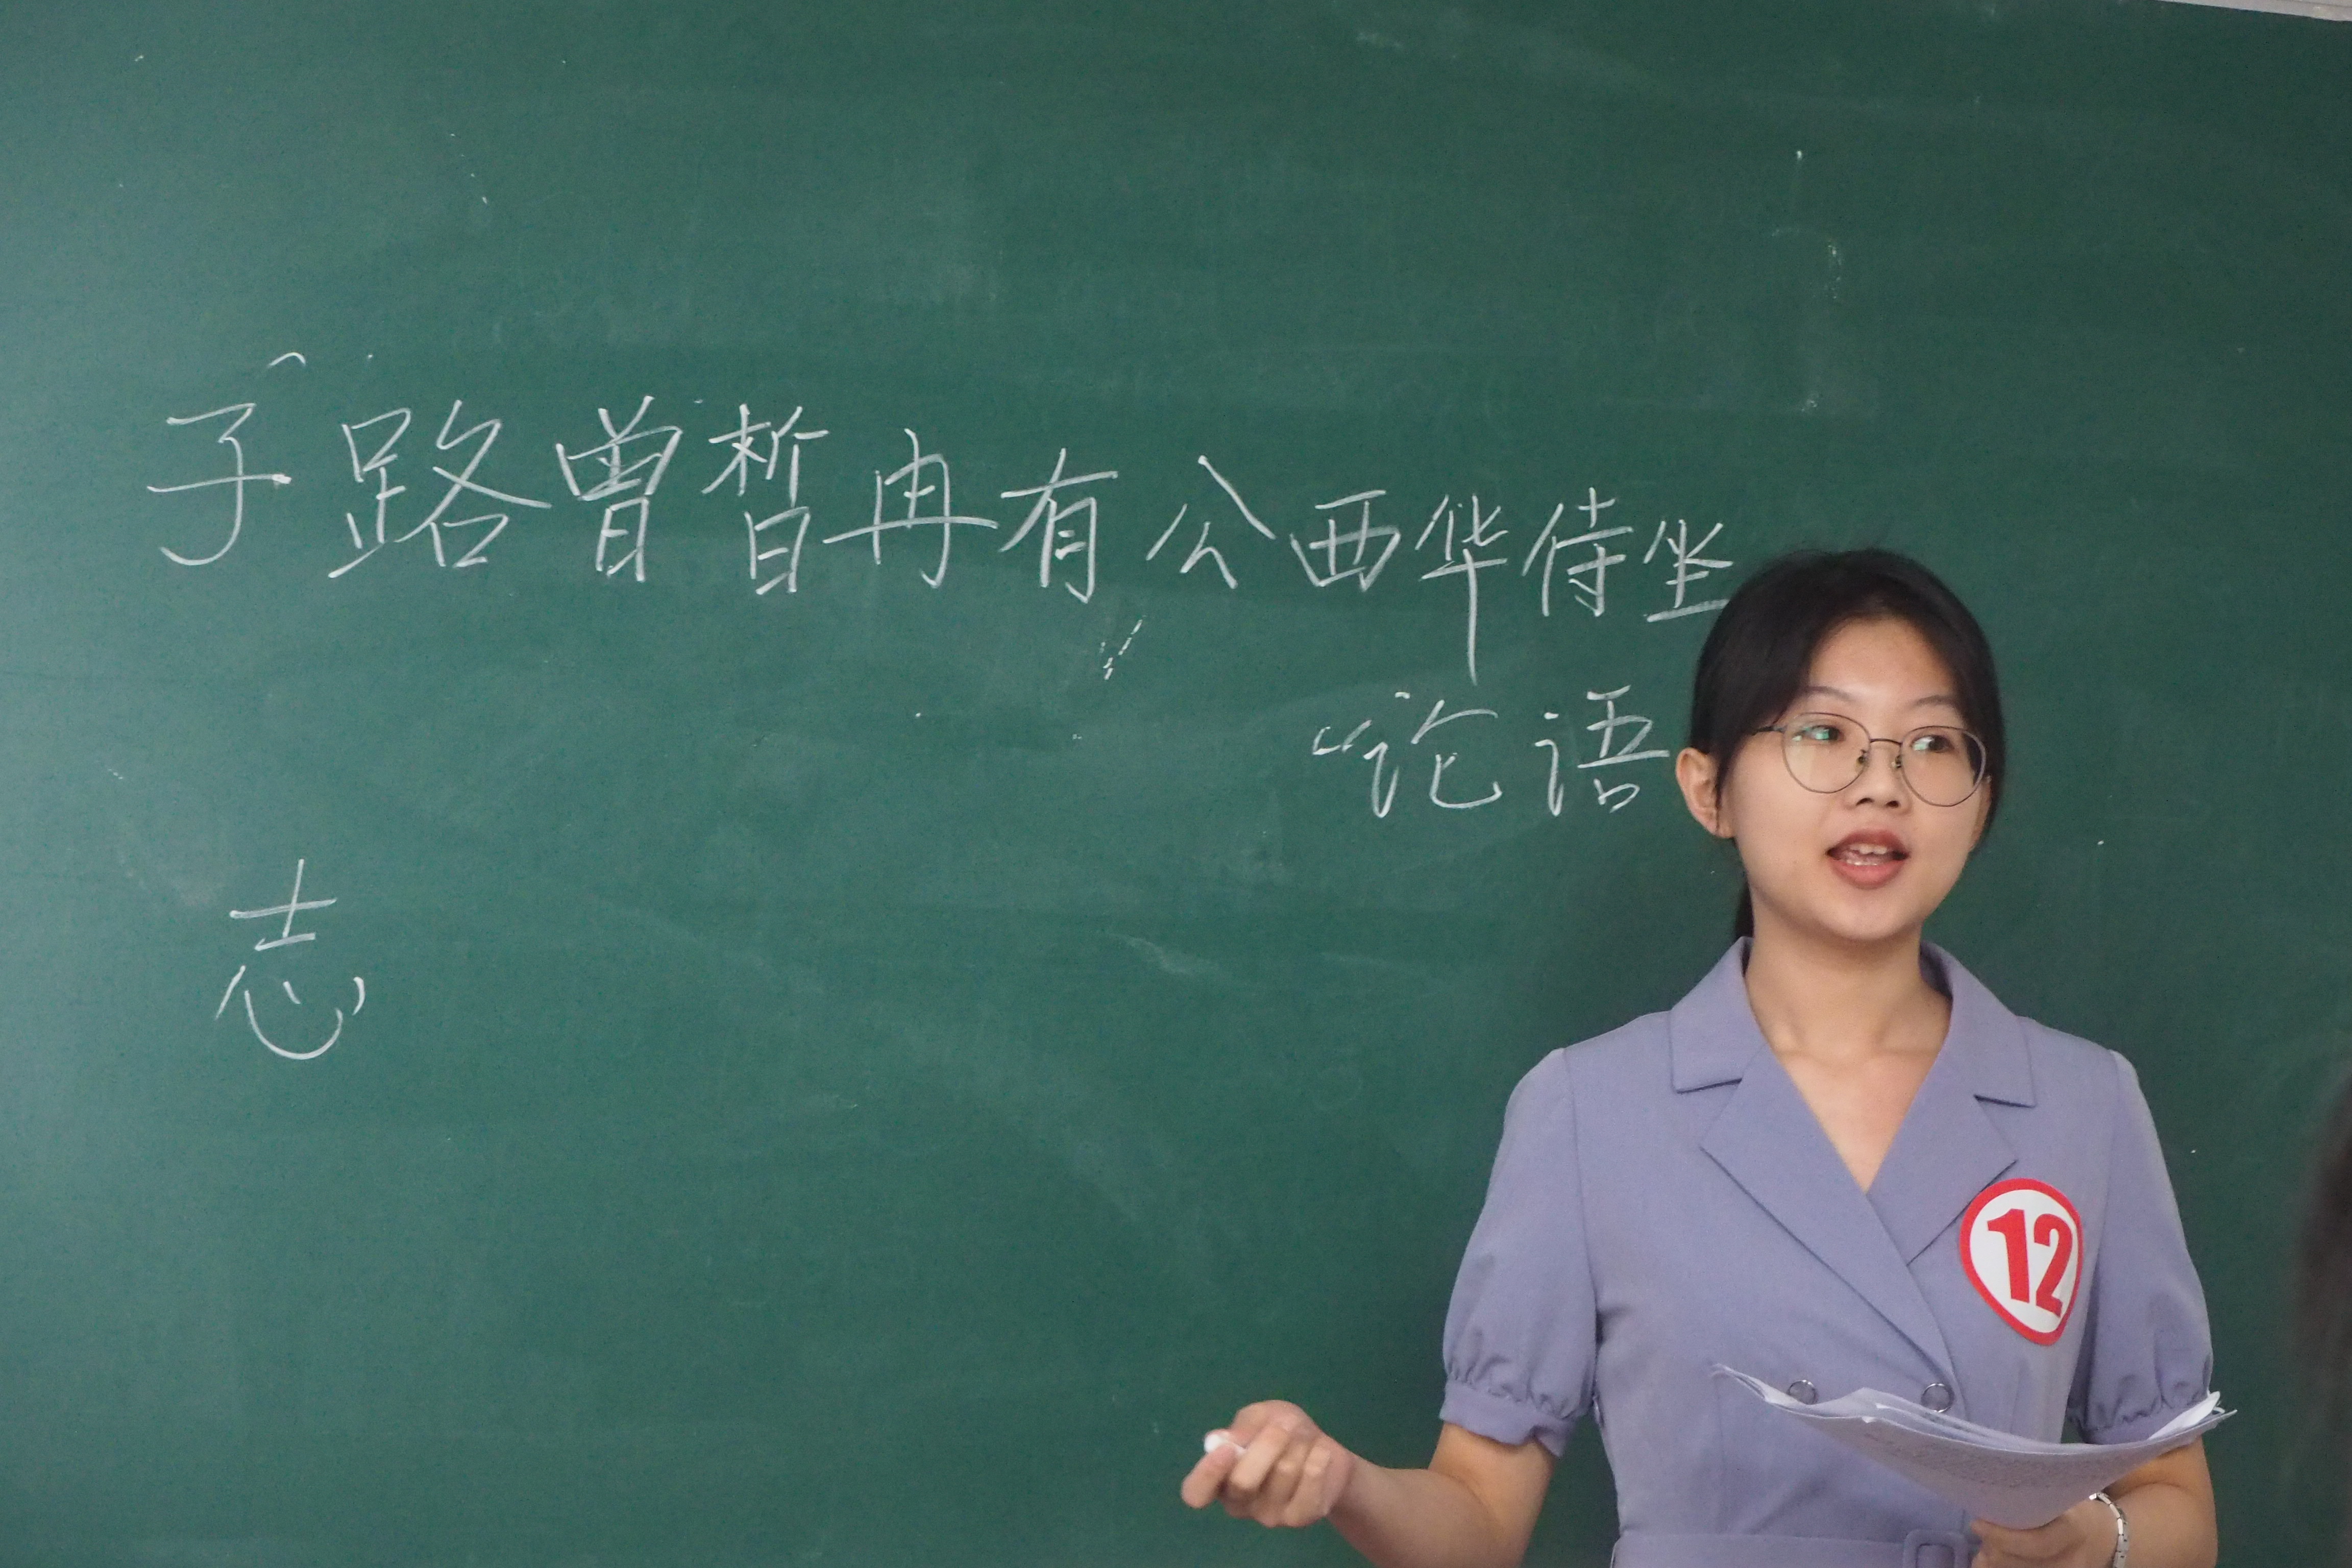 子路曾皙冉有公西华侍坐
“论语
志
12